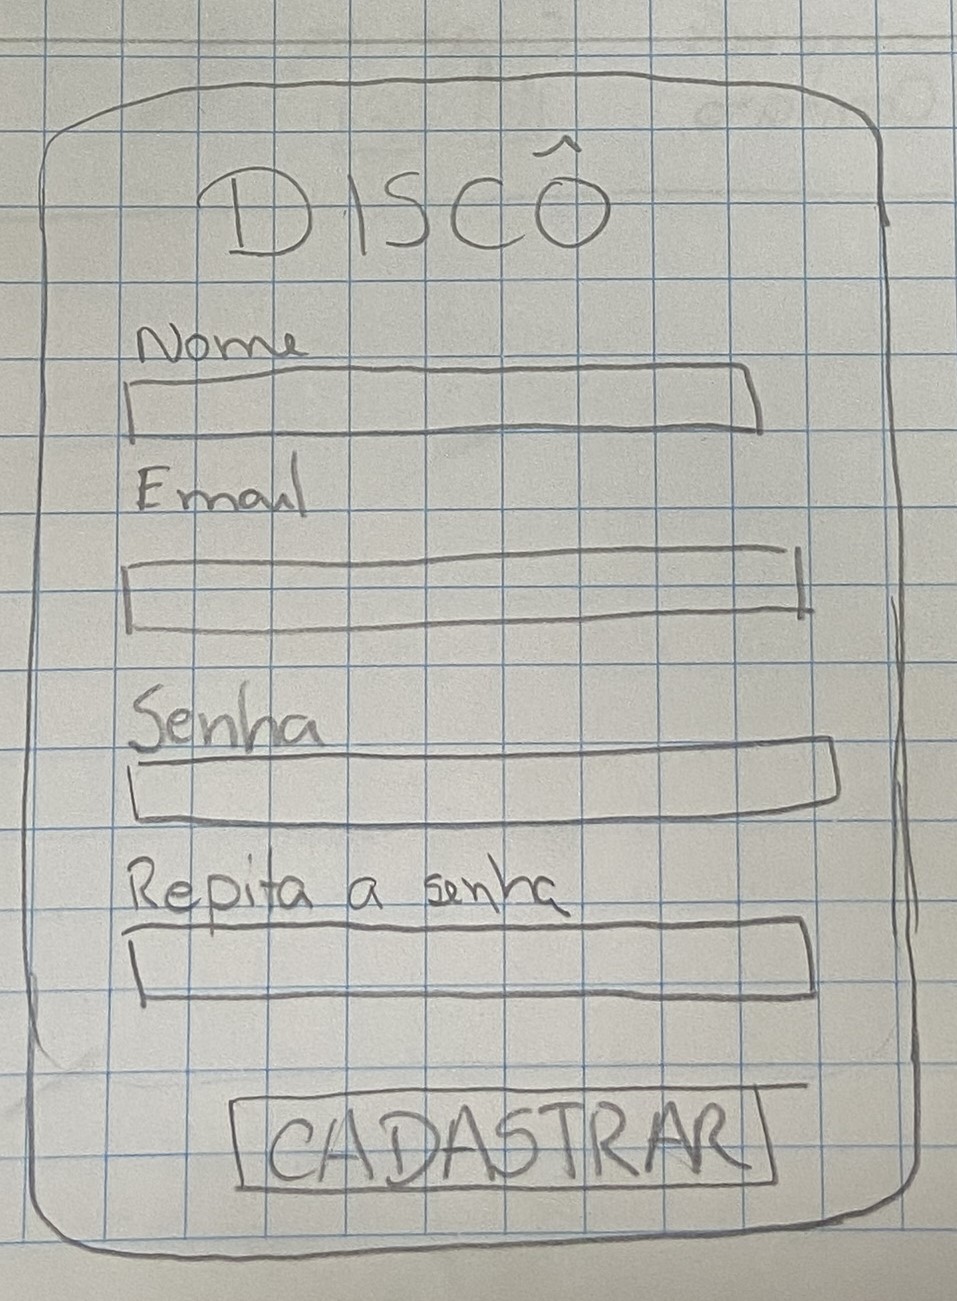 DISCÔ
Nome
Email
Senha
Repita a senha
CADASTRAR